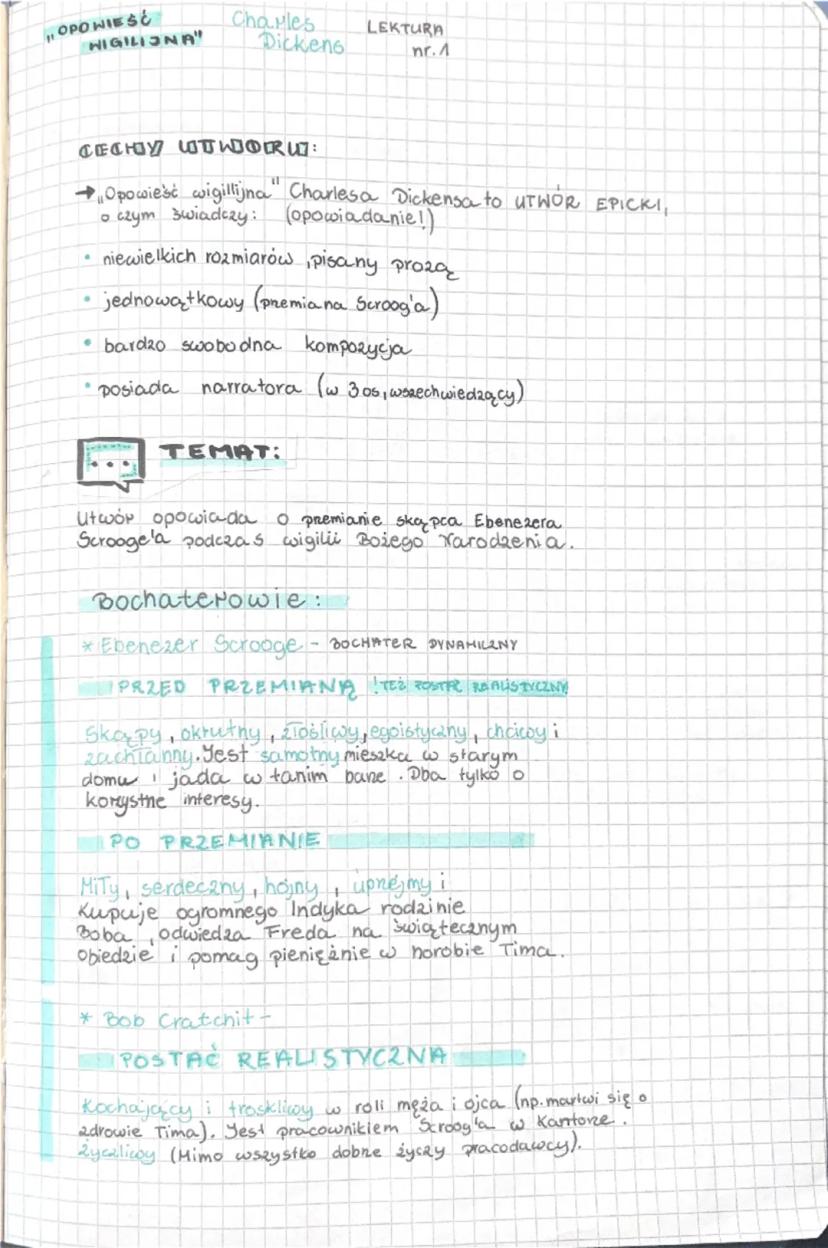 „OPOWIEŚĆ
WIGILIJNA"
Charles
Dickens
LEKTURA
nr.1
CECHY UTWORU:
→ „Opowieść wigillijna" Charlesa Dickensa to UTWÓR EPICKI,
o czym świadczy: (opowiadanie!)
• niewielkich rozmiarów, pisany prozą
• jednowątkowy (przemiana Scroog'a)
• bardzo swobodna kompozycja
• posiada narratora (w 3 os, wszechwiedzący)
TEMAT:
Utwór opowiada o przemianie skąpca Ebenezera
Scrooge'a podczas wigilii Bożego Narodzenia.
Bochaterowie:
* Ebenezer Scrooge - BOCHATER DYNAMICZNY
PRZED PRZEMIANĄ ! TEŻ POSTAĆ REALISTYCZNY
Skąpy, okrutny, złośliwy, egoistyczny, chciwy i
zachłanny. Jest samotny mieszka w starym
domu i jada w tanim barze. Dba tylko o
korzystne interesy.
PO PRZEMIANIE
Miły, serdeczny, hojny, uprzejmy i
Kupuje ogromnego Indyka rodzinie
Boba, odwiedza Freda na świątecznym
obiedzie i pomag pieniężnie w horobie Tima.
* Bob Cratchit -
POSTAĆ REALISTYCZNA
Kochający i troskliwy w roli męża i ojca (np. martwi się o
zdrowie Tima). Jest pracownikiem Scroog'a w Kantorze.
Życzliwy (Mimo wszystko dobrze życzy pracodawcy).